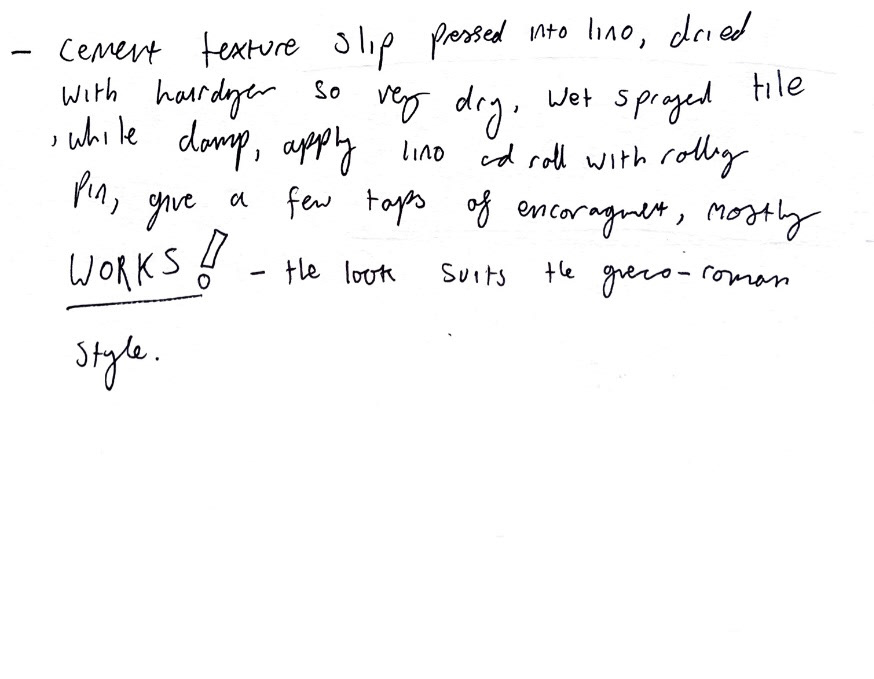 - cement texture slip pressed into lino, dried
with hairdryer so very dry, wet sprayed tile
, while damp, apply lino and roll with rolling
pin, give a few taps of encoragment, mostly
WORKS! - the look suits the greco-roman
style.